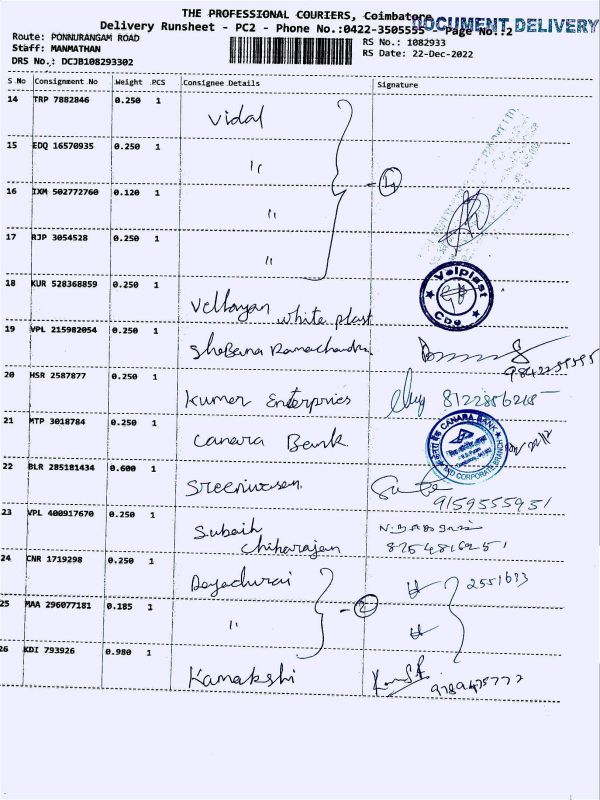 THE PROFESSIONAL COURIERS, Coimbatore
DOCUMENT DELIVERY
Delivery Runsheet - PC2 - Phone No.:0422-3505555 - Page No.:2
Route: PONNURANGAM ROAD
RS No.: 1082933
Staff: MANMATHAN
RS Date: 22-Dec-2022
DRS No.: DCJB108293302
S No Consignment No Weight PCS Consignee Details Signature
14 TRP 7882846 0.250 1 Vidal
15 EDQ 16570935 0.250 1 "
4
16 IXM 502772760 0.120 1 "
17 RJP 3054528 0.250 1 "
18 KUR 528368859 0.250 1 Vellayan white plast
Velplast
Cbe
19 VPL 215982054 0.250 1 Shobana Ramachandra
20 HSR 2587877 0.250 1 Kumar Enterprises 8122856265
21 MTP 3018784 0.250 1 Canara Bank
CANARA BANK
MID CORPORATE BRANCH
22 BLR 285181434 0.600 1 Sreenivasan
9159555951
23 VPL 400917670 0.250 1 Subaih
24 CNR 1719298 0.250 1
2
25 MAA 296077181 0.185 1 "
26 KDI 793926 0.980 1 Kamakshi
9789475777